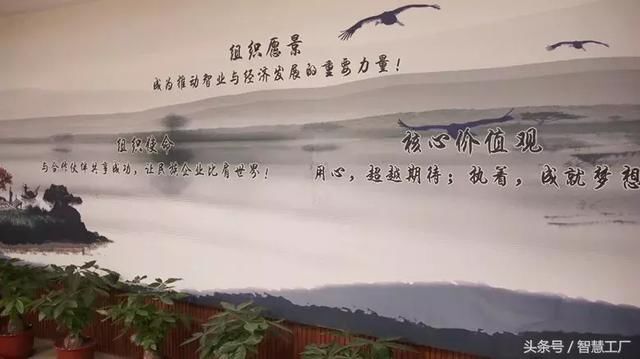 组织愿景
成为推动智业与经济发展的重要力量！
组织使命
与合作伙伴共享成功，让民族企业比肩世界！
核心价值观
用心，超越期待；执着，成就梦想
头条号/智慧工厂